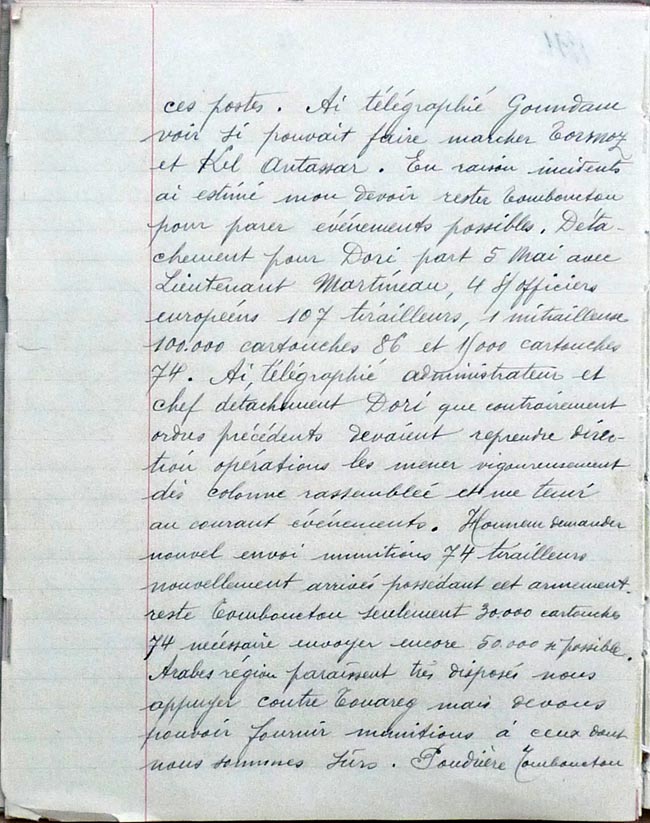 ces postes. Ai télégraphié Goundam
voir si pouvait faire marcher Tormoz
et Kel Antassar. En raison incidents
ai estimé mon devoir rester Tombouctou
pour parer événements possibles. Déta-
chement pour Dori part 5 Mai avec
Lieutenant Martineau, 4 S/officiers
européens 107 tirailleurs, 1 mitrailleuse
100.000 cartouches 86 et 15000 cartouches
74. Ai télégraphié administrateur et
chef detachement Dori que contrairement
ordres précédents devaient reprendre direc-
tion opérations les mener vigoureusement
dès colonne rassemblée et me tenir
au courant événements. Honneur demander
nouvel envoi munitions 74 tirailleurs
nouvellement arrivés possédant cet armement.
reste Tombouctou seulement 30.000 cartouches
74 nécessaire envoyer encore 50.000 si possible.
Arabes région paraissent très disposés nous
appuyer contre Touareg mais devons
pouvoir fournir munitions à ceux dont
nous sommes sûrs. Poudrière Tombouctou